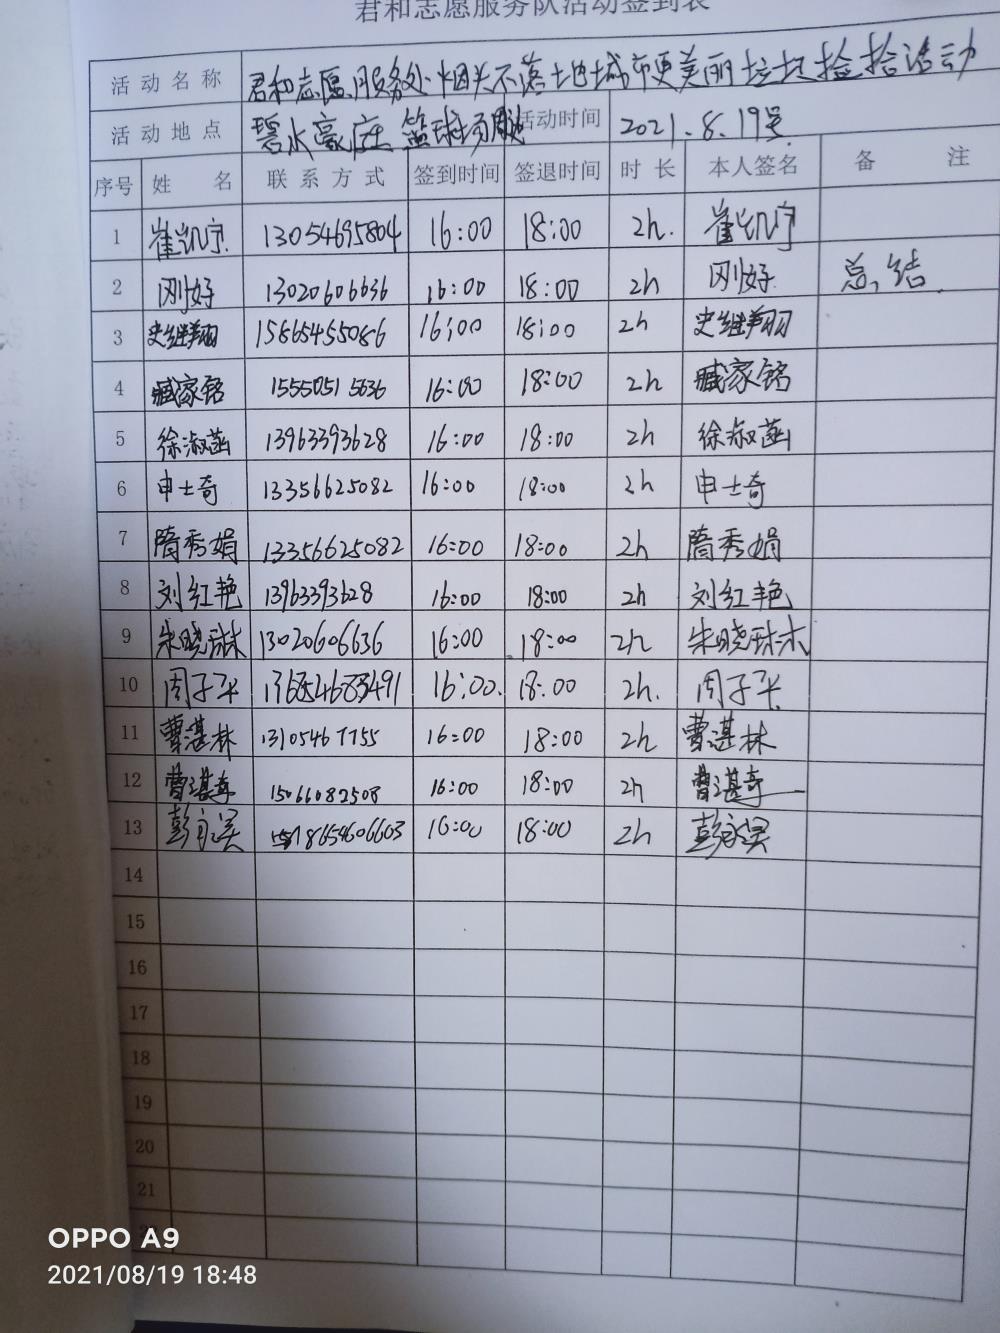 君和志愿服务队活动签到表
活动名称 君和志愿服务处 烟头不落地城市更美丽垃圾捡拾活动
活动地点 碧水豪庭篮球场 活动时间 2021.8.19号
序号 姓名 联系方式 签到时间 签退时间 时长 本人签名 备注
1 崔凯宁 13054695804 16:00 18:00 2h. 崔凯宁
2 刚好 13020606636 16:00 18:00 2h 刚好 总结
3 史继翔 15865455086 16:00 18:00 2h 史继翔
4 臧家铭 15550515636 16:00 18:00 2h 臧家铭
5 徐淑菡 13963393628 16:00 18:00 2h 徐淑菡
6 申士奇 13356625082 16:00 18:00 2h 申士奇
7 隋秀娟 13356625082 16:00 18:00 2h 隋秀娟
8 刘红艳 13963393628 16:00 18:00 2h 刘红艳
9 朱晓琳 13020606636 16:00 18:00 2h 朱晓琳
10 周子 16:00. 18:00 2h. 周子
11 曹湛林 13105467755 16:00 18:00 2h 曹湛林
12 曹湛奇 15066082508 16:00 18:00 2h 曹湛奇
13 彭 18654606603 16:00 18:00 2h 彭
14
15
16
17
18
19
20
21
OPPO A9
2021/08/19 18:48